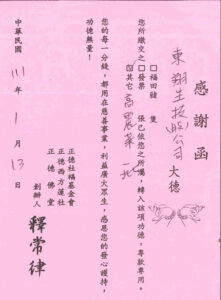 感謝函
東翔生技(股)公司 大德
您所繳交之
□福田豬 隻
□發票 張 已依您之所囑,轉入該項功德,專款專用。
其它 高麗菜一批
您的每一分錢,都用在慈善事業,利益廣大眾生,感恩您的發心護持,
功德無量!
正德社福基金會
正德西方蓮社
正德佛堂
創辦人 釋常律
中華民國 111 年 1 月 13 日